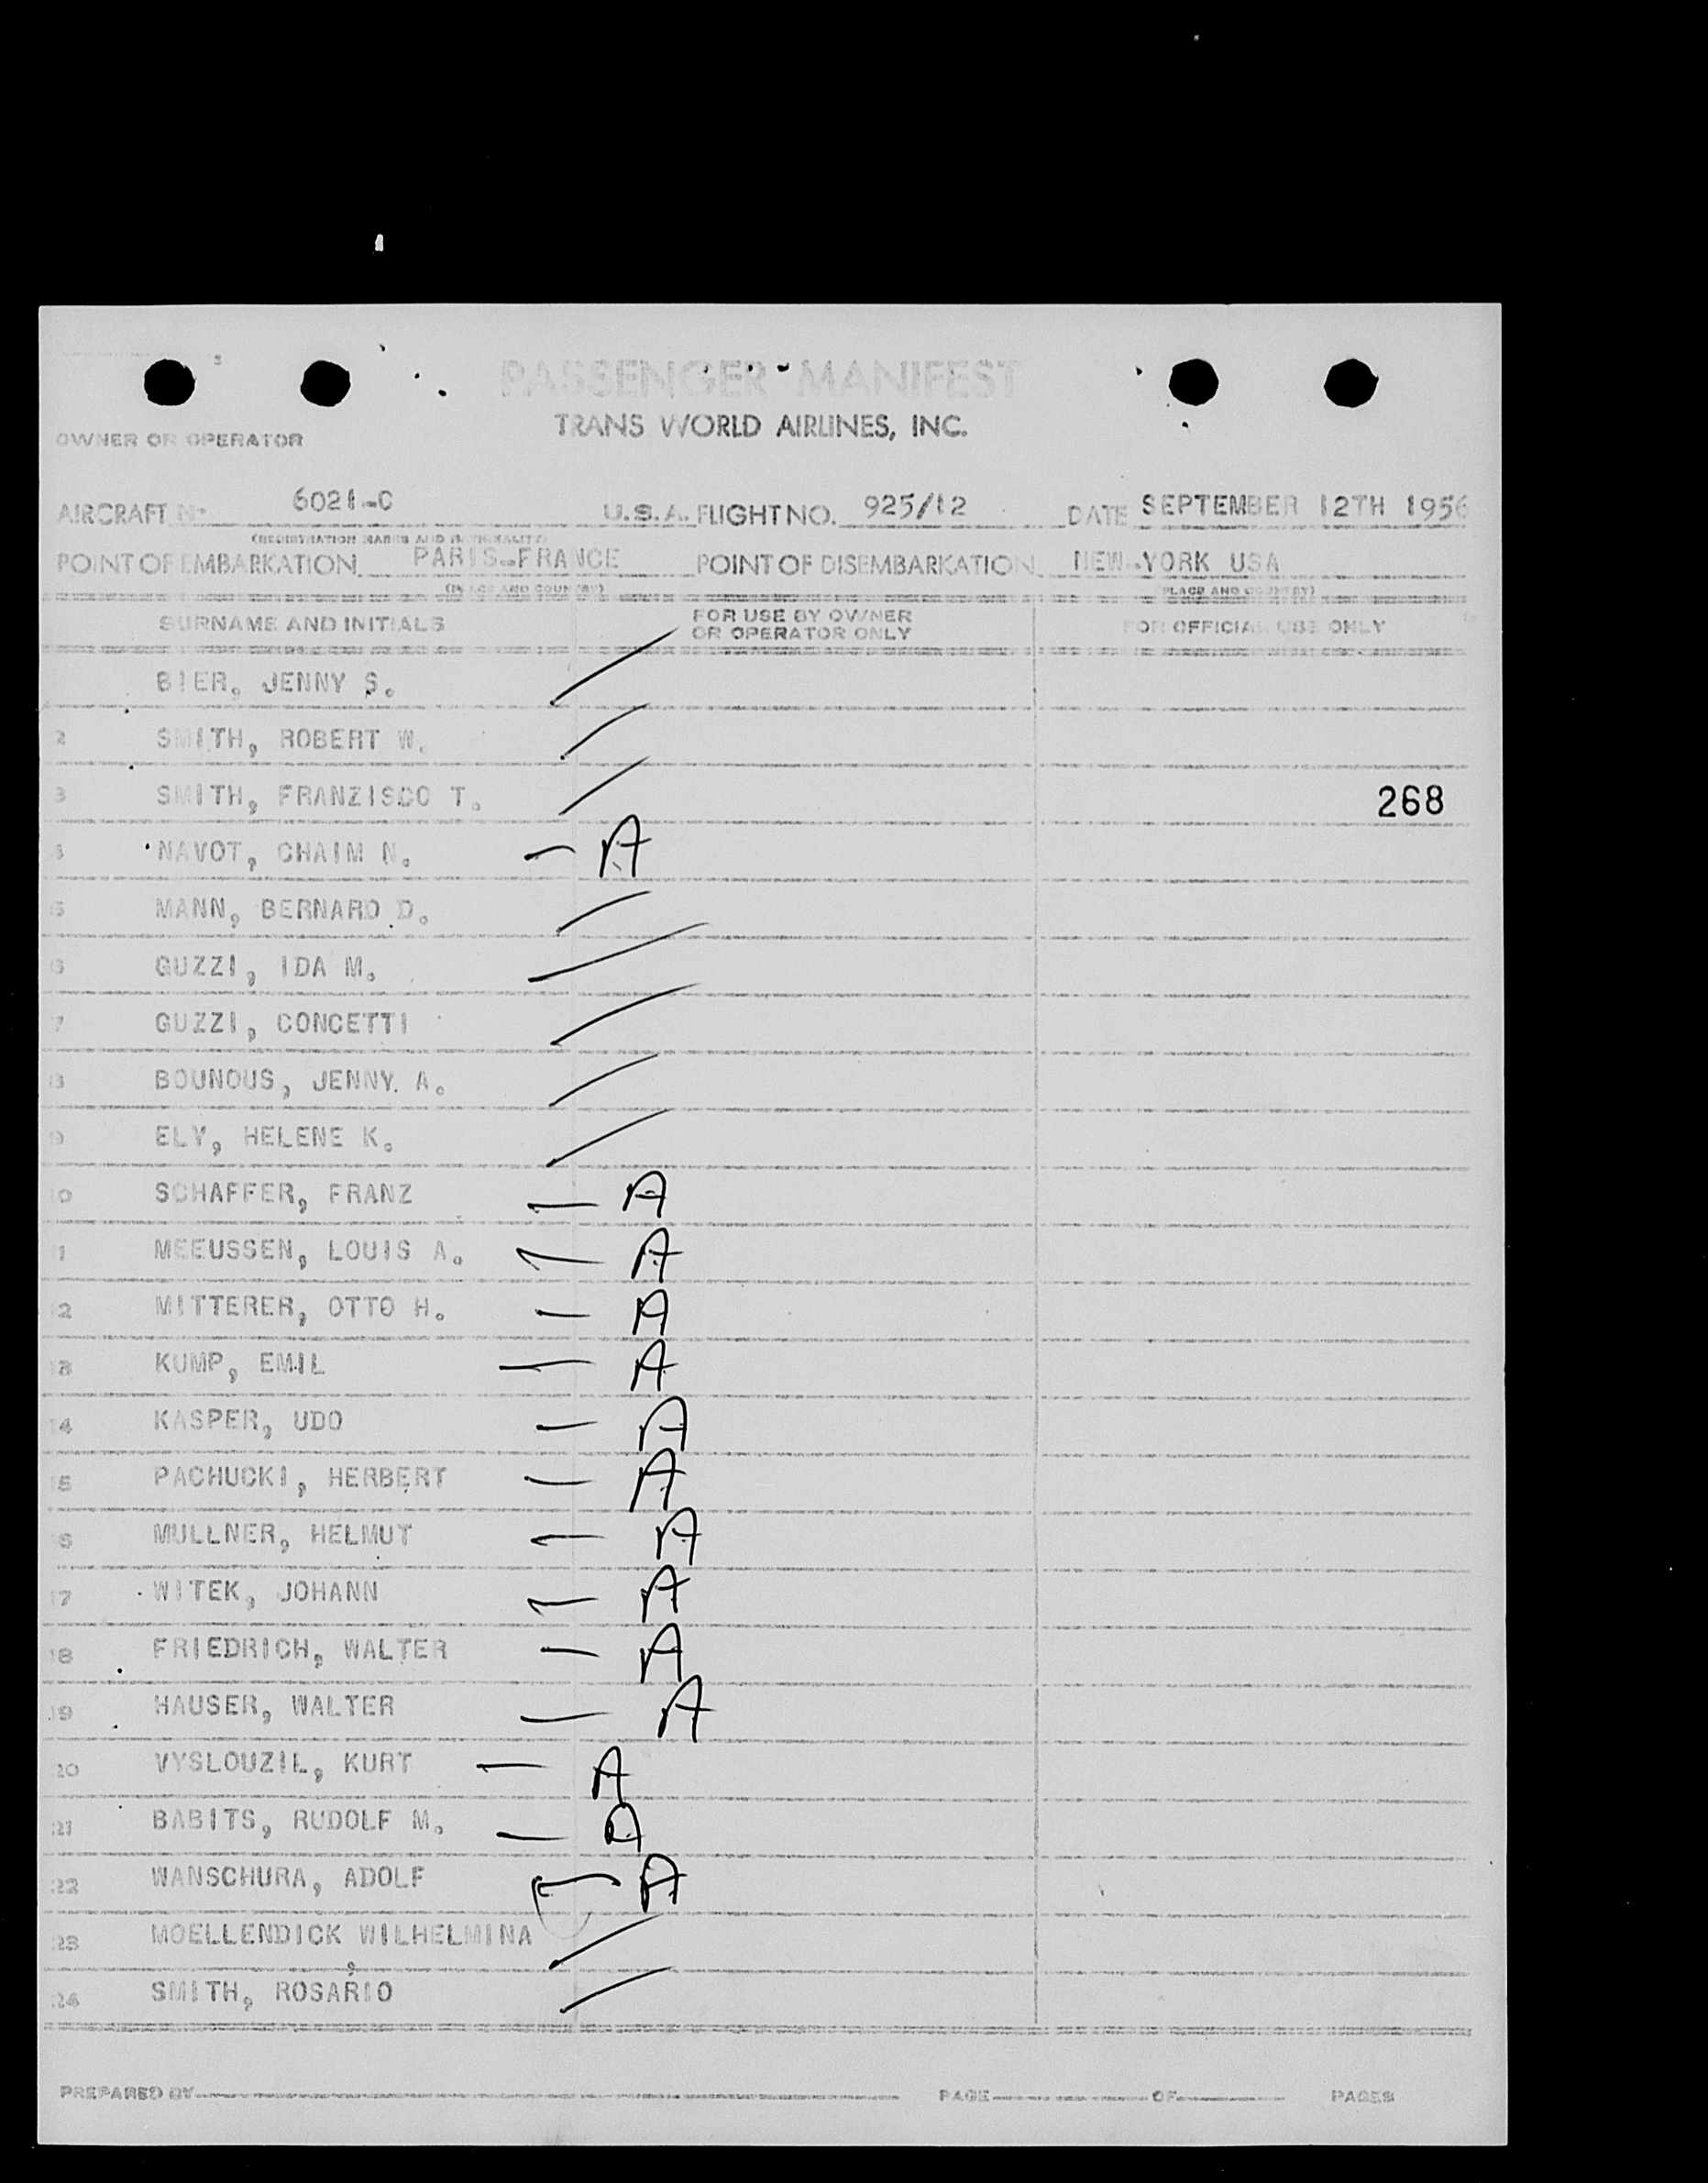 PASSENGER MANIFEST
TRANS WORLD AIRLINES, INC.
OWNER OR OPERATOR
AIRCRAFT No 6021-C U.S.A. FLIGHT NO. 925/12 DATE SEPTEMBER 12TH 1956
(REGISTRATION MARKS AND NATIONALITY)
POINT OF EMBARKATION PARIS-FRANCE POINT OF DISEMBARKATION NEW-YORK USA
(PLACE AND COUNTRY) (PLACE AND COUNTRY)
SURNAME AND INITIALS FOR USE BY OWNER OR OPERATOR ONLY FOR OFFICIAL USE ONLY
BIER, JENNY S.
2 SMITH, ROBERT W.
3 SMITH, FRANZISCO T. 268
4 NAVOT, CHAIM N. – A
5 MANN, BERNARD D.
6 GUZZI, IDA M.
7 GUZZI, CONCETTI
8 BOUNOUS, JENNY A.
9 ELY, HELENE K.
10 SCHAFFER, FRANZ — A
11 MEEUSSEN, LOUIS A. — A
12 MITTERER, OTTO H. — A
13 KUMP, EMIL — A
14 KASPER, UDO — A
15 PACHUCKI, HERBERT — A
16 MULLNER, HELMUT — A
17 WITEK, JOHANN — A
18 FRIEDRICH, WALTER — A
19 HAUSER, WALTER — A
20 VYSLOUZIL, KURT — A
21 BABITS, RUDOLF M. — A
22 WANSCHURA, ADOLF — A
23 MOELLENDICK, WILHELMINA
24 SMITH, ROSARIO
PREPARED BY PAGE OF PAGES